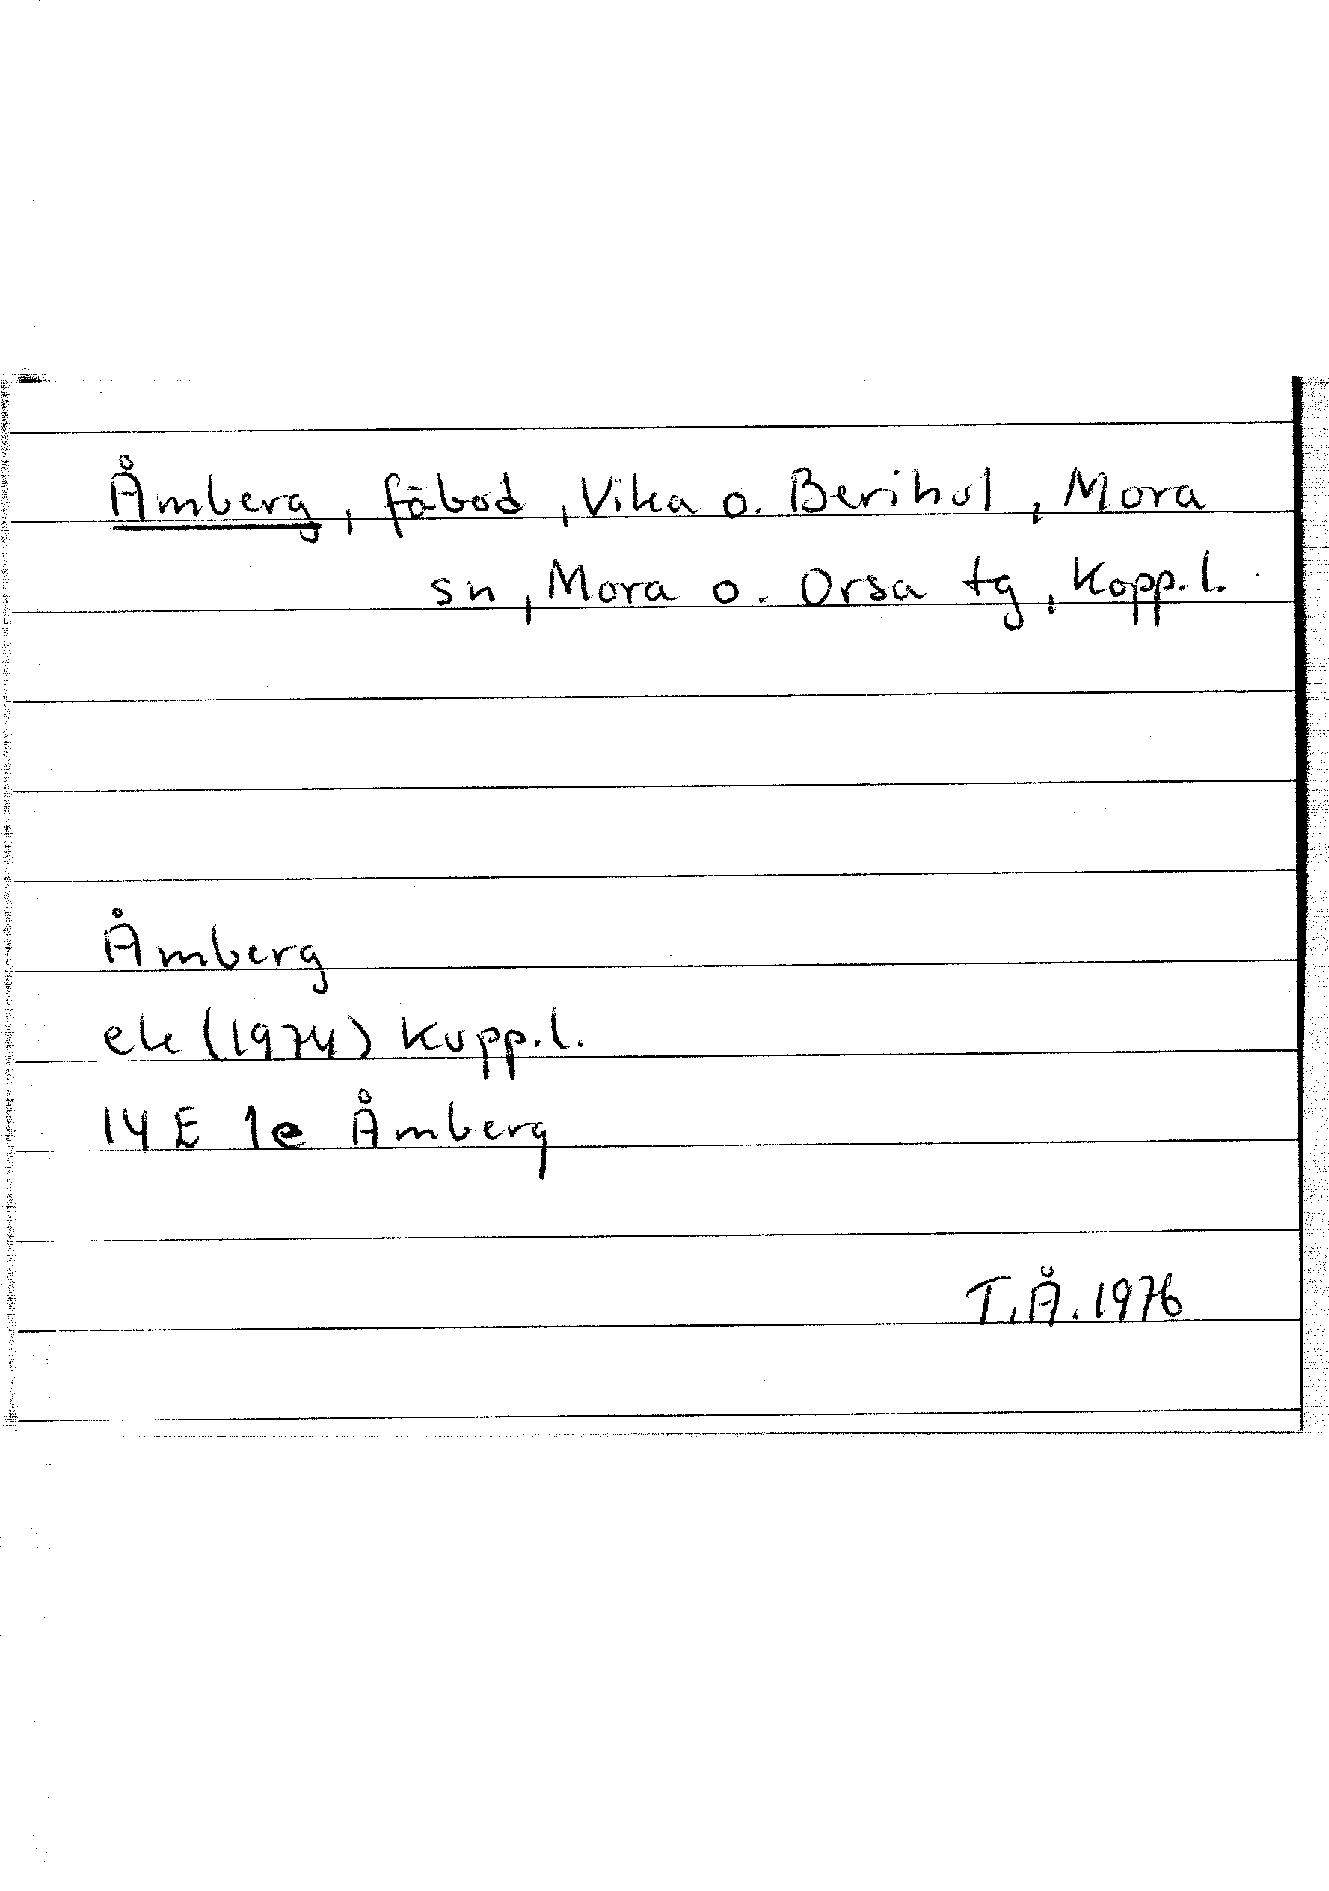 Åmberg, fäbod, Vika o. Berihol, Mora
sn, Mora o. Orsa tg, Kopp. l.
Åmberg
ek (1974) Kopp. l.
14 E 1e Åmberg
T. Å. 1976